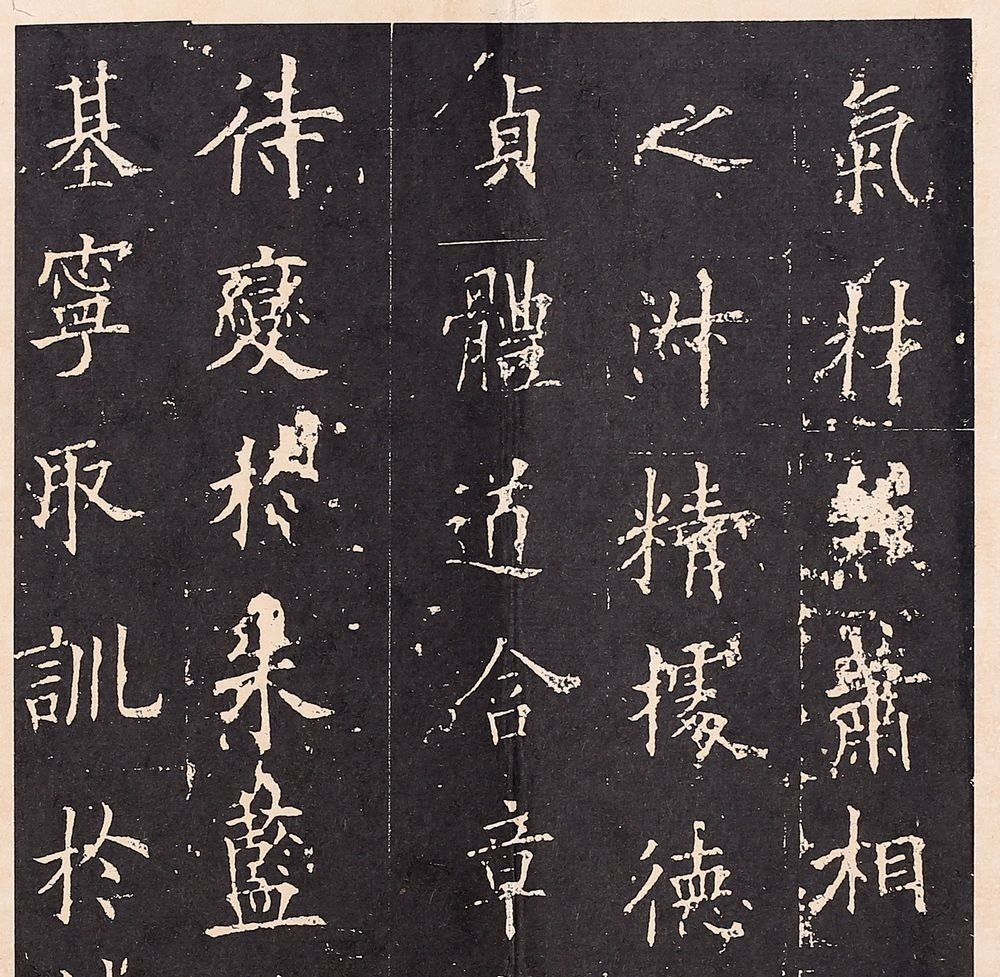 氣壯蕭相
之精據德
貞體道含章
待變於朱藍
基寧取訓於